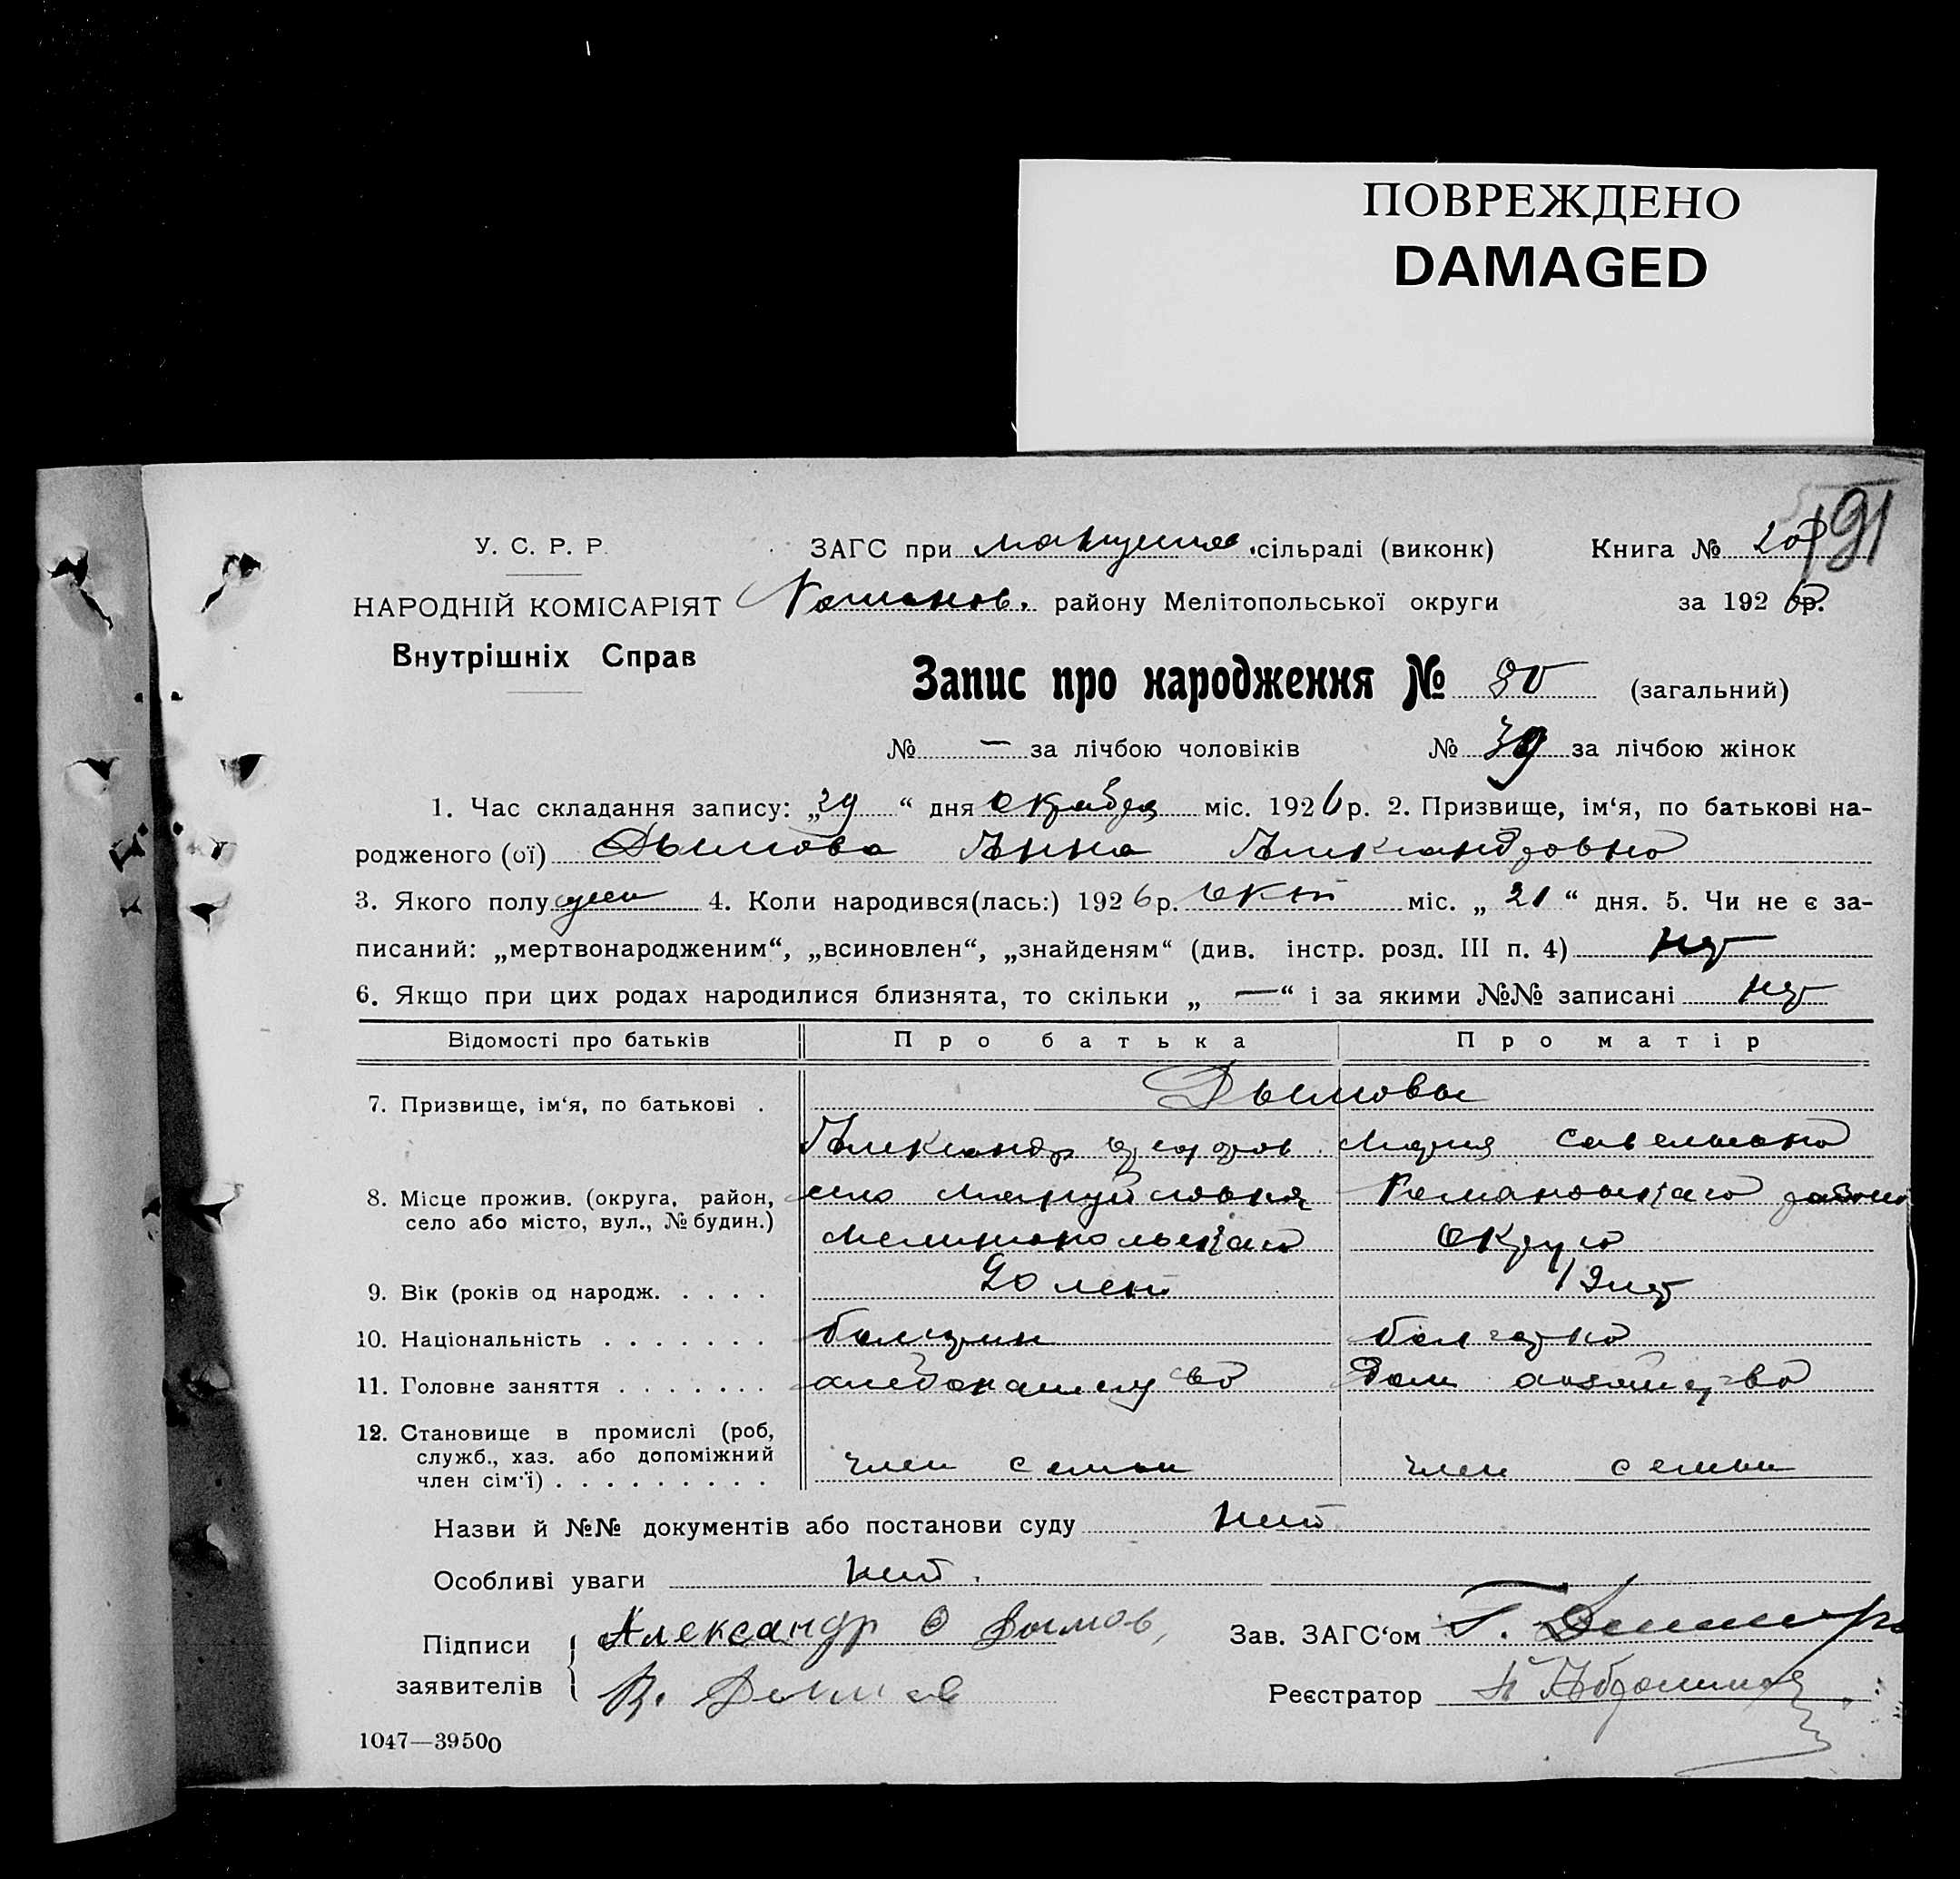 ПОВРЕЖДЕНО
DAMAGED
191
У. С. Р. Р.
ЗАГС при сільраді (виконк) Книга №
НАРОДНІЙ КОМІСАРІЯТ Романов. району Мелітопольської округи за 1926 р.
Внутрішніх Справ
Запис про народження № 80 (загальний)
№ — за лічбою чоловіків № 39 за лічбою жінок
1. Час складання запису: „29“ дня октября міс. 1926 р. 2. Призвище, ім‘я, по батькові на-
родженого (ої) Дымова Анна Александровна
3. Якого полу жен 4. Коли народився(лась:) 1926 р. окт міс. „21“ дня. 5. Чи не є за-
писаний: „мертвонародженим“, „всиновлен“, „знайденям“ (див. інстр. розд. III п. 4) нет
6. Якщо при цих родах народилися близнята, то скільки „—“ і за якими №№ записані нет
Відомості про батьків Про батька Про матір
7. Призвище, ім‘я, по батькові . Дымовы
Александр Мария Савельевна
8. Місце прожив. (округа, район, село Мануйловка Романовского района
село або місто, вул., № будин.)
Мелитопольского округа
9. Вік (років од народж. . . . . 20 лет 19 лет
10. Національність . . . . . . . болгарин болгарка
11. Головне заняття . . . . . . . хлебопашество дом хозяйство
12. Становище в промислі (роб,
служб., хаз. або допоміжний
член сім‘ї) . . . . . . . . . член семьи член семьи
Назви й №№ документів або постанови суду нет
Особливі уваги нет.
Підписи заявителів { Александр Ф Дымов,
Зав. ЗАГС‘ом Г.
Дымов
Реєстратор
1047—39500